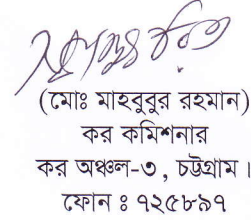 (মোঃ মাহবুবুর রহমান)
কর কমিশনার
কর অঞ্চল-৩, চট্টগ্রাম।
ফোন ঃ ৭২৫৮৯৭